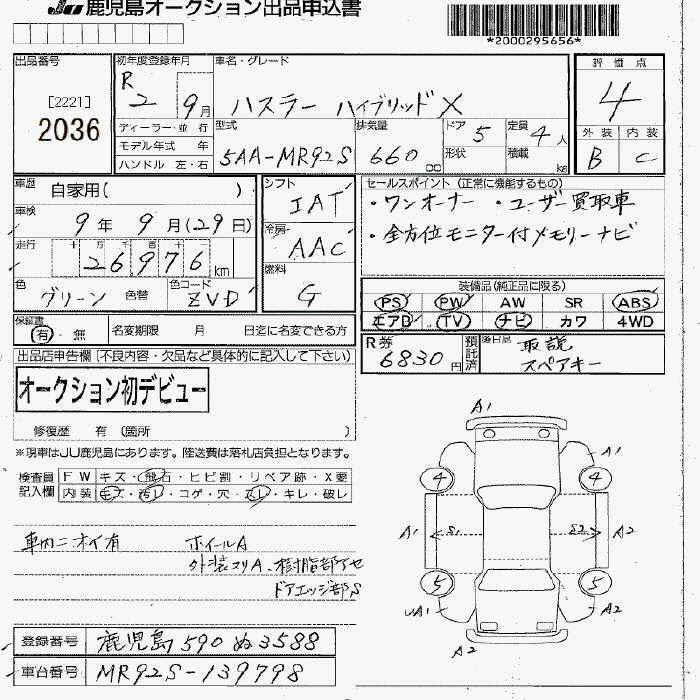 JU 鹿児島オークション出品申込書
*2000295656*
出品番号
[2221]
2036
初年度登録年月
R
2 9月
車名・グレード
ハスラー ハイブリッド X
評価点
4
外装 内装
B C
ディーラー・並行
モデル年式 年
ハンドル 左・右
型式
5AA-MR92S
排気量
660 cc
ドア 5
形状
定員 4人
積載 kg
車歴
自家用( )
車検
9年 9月(29日)
走行
十 万 千 百 十 一
26976 km
色
グリーン 色替
色コード
ZVD
シフト
IAT
冷房
AAC
燃料
G
セールスポイント (正常に機能するもの)
・ワンオーナー ・ユーザー買取車
・全方位モニター付メモリーナビ
装備品(純正品に限る)
PS PW AW SR ABS
エアB TV ナビ カワ 4WD
保証書
有・無
名変期限 月 日迄に名変できる方
R券
6830円
預託済
後日品 取説
スペアキー
出品店申告欄 (不良内容・欠品など具体的に記入して下さい)
オークション初デビュー
修復歴 有 (箇所 )
※現車はJU鹿児島にあります。陸送費は落札店負担となります。
検査員
記入欄
FW キズ・飛石・ヒビ割・リペア跡・X要
内装 キズ・汚レ・コゲ・穴・スレ・キレ・破レ
車内ニオイ有 ホイールA
外装スリA、樹脂部アセ
ドアエッジ部S
A1
A1
4 4
A1 S1 S2 A2
5 5
A1 A2
A2
登録番号 鹿児島 590 ぬ 3588
車台番号 MR92S-139798